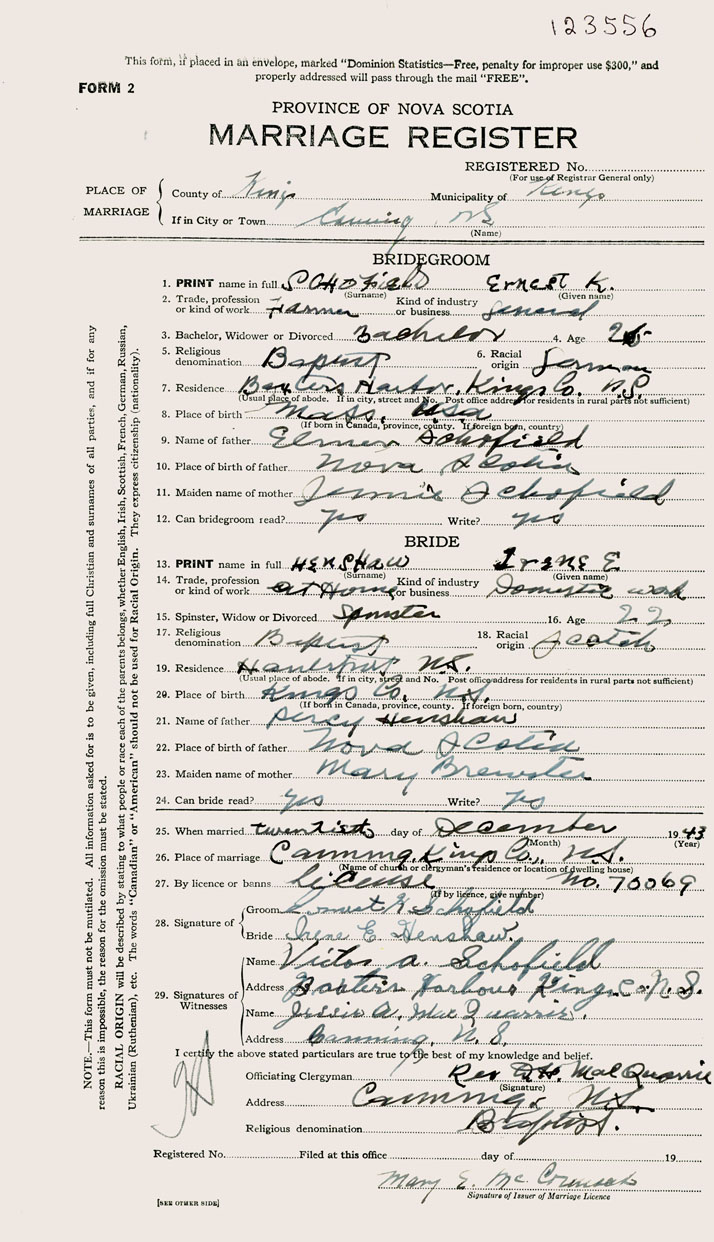 123556
This form, if placed in an envelope, marked "Dominion Statistics—Free, penalty for improper use $300," and
properly addressed will pass through the mail "FREE".
FORM 2
PROVINCE OF NOVA SCOTIA
MARRIAGE REGISTER
REGISTERED No.
(For use of Registrar General only)
PLACE OF MARRIAGE
County of Kings Municipality of Kings
If in City or Town Canning NS
(Name)
BRIDEGROOM
1. PRINT name in full SCHOFIELD Ernest K.
(Surname) (Given name)
2. Trade, profession or kind of work Farmer Kind of industry or business General
3. Bachelor, Widower or Divorced Bachelor 4. Age 25
5. Religious denomination Baptist 6. Racial origin German
7. Residence Baxters Harbor, Kings Co. N.S.
(Usual place of abode. If in city, street and No. Post office address for residents in rural parts not sufficient)
8. Place of birth Mass. USA
(If born in Canada, province, county. If foreign born, country)
9. Name of father Elmer Schofield
10. Place of birth of father Nova Scotia
11. Maiden name of mother Jennie Schofield
12. Can bridegroom read? yes Write? yes
BRIDE
13. PRINT name in full HENSHAW Irene E
(Surname) (Given name)
14. Trade, profession or kind of work at Home Kind of industry or business Domestic work
15. Spinster, Widow or Divorced Spinster 16. Age 22
17. Religious denomination Baptist 18. Racial origin Scotch
19. Residence N.S.
(Usual place of abode. If in city, street and No. Post office address for residents in rural parts not sufficient)
20. Place of birth Kings Co. N.S.
(If born in Canada, province, county. If foreign born, country)
21. Name of father Percy Henshaw
22. Place of birth of father Nova Scotia
23. Maiden name of mother Mary Brewster
24. Can bride read? yes Write? yes
25. When married twentieth day of December 1943
(Month) (Year)
26. Place of marriage Canning, Kings Co., N.S.
(Name of church or clergyman's residence or location of dwelling house)
27. By licence or banns license No. 70069
(If by licence, give number)
28. Signature of
Groom Ernest K. Schofield
Bride Irene E. Henshaw.
29. Signatures of Witnesses
Name Victor A. Schofield
Address Baxters Harbour Kings Co. N.S.
Name Jessie A. MacQuarrie.
Address Canning, N.S.
I certify the above stated particulars are true to the best of my knowledge and belief.
Officiating Clergyman Rev MacQuarrie
(Signature)
Address Canning, N.S.
Religious denomination Baptist.
Registered No. Filed at this office day of 19
Mary E. McCormack
Signature of Issuer of Marriage Licence
[SEE OTHER SIDE]
NOTE.—This form must not be mutilated. All information asked for is to be given, including full Christian and surnames of all parties, and if for any
reason this is impossible, the reason for the omission must be stated.
RACIAL ORIGIN will be described by stating to what people or race each of the parents belongs, whether English, Irish, Scottish, French, German, Russian,
Ukrainian (Ruthenian), etc. The words "Canadian" or "American" should not be used for Racial Origin. They express citizenship (nationality).